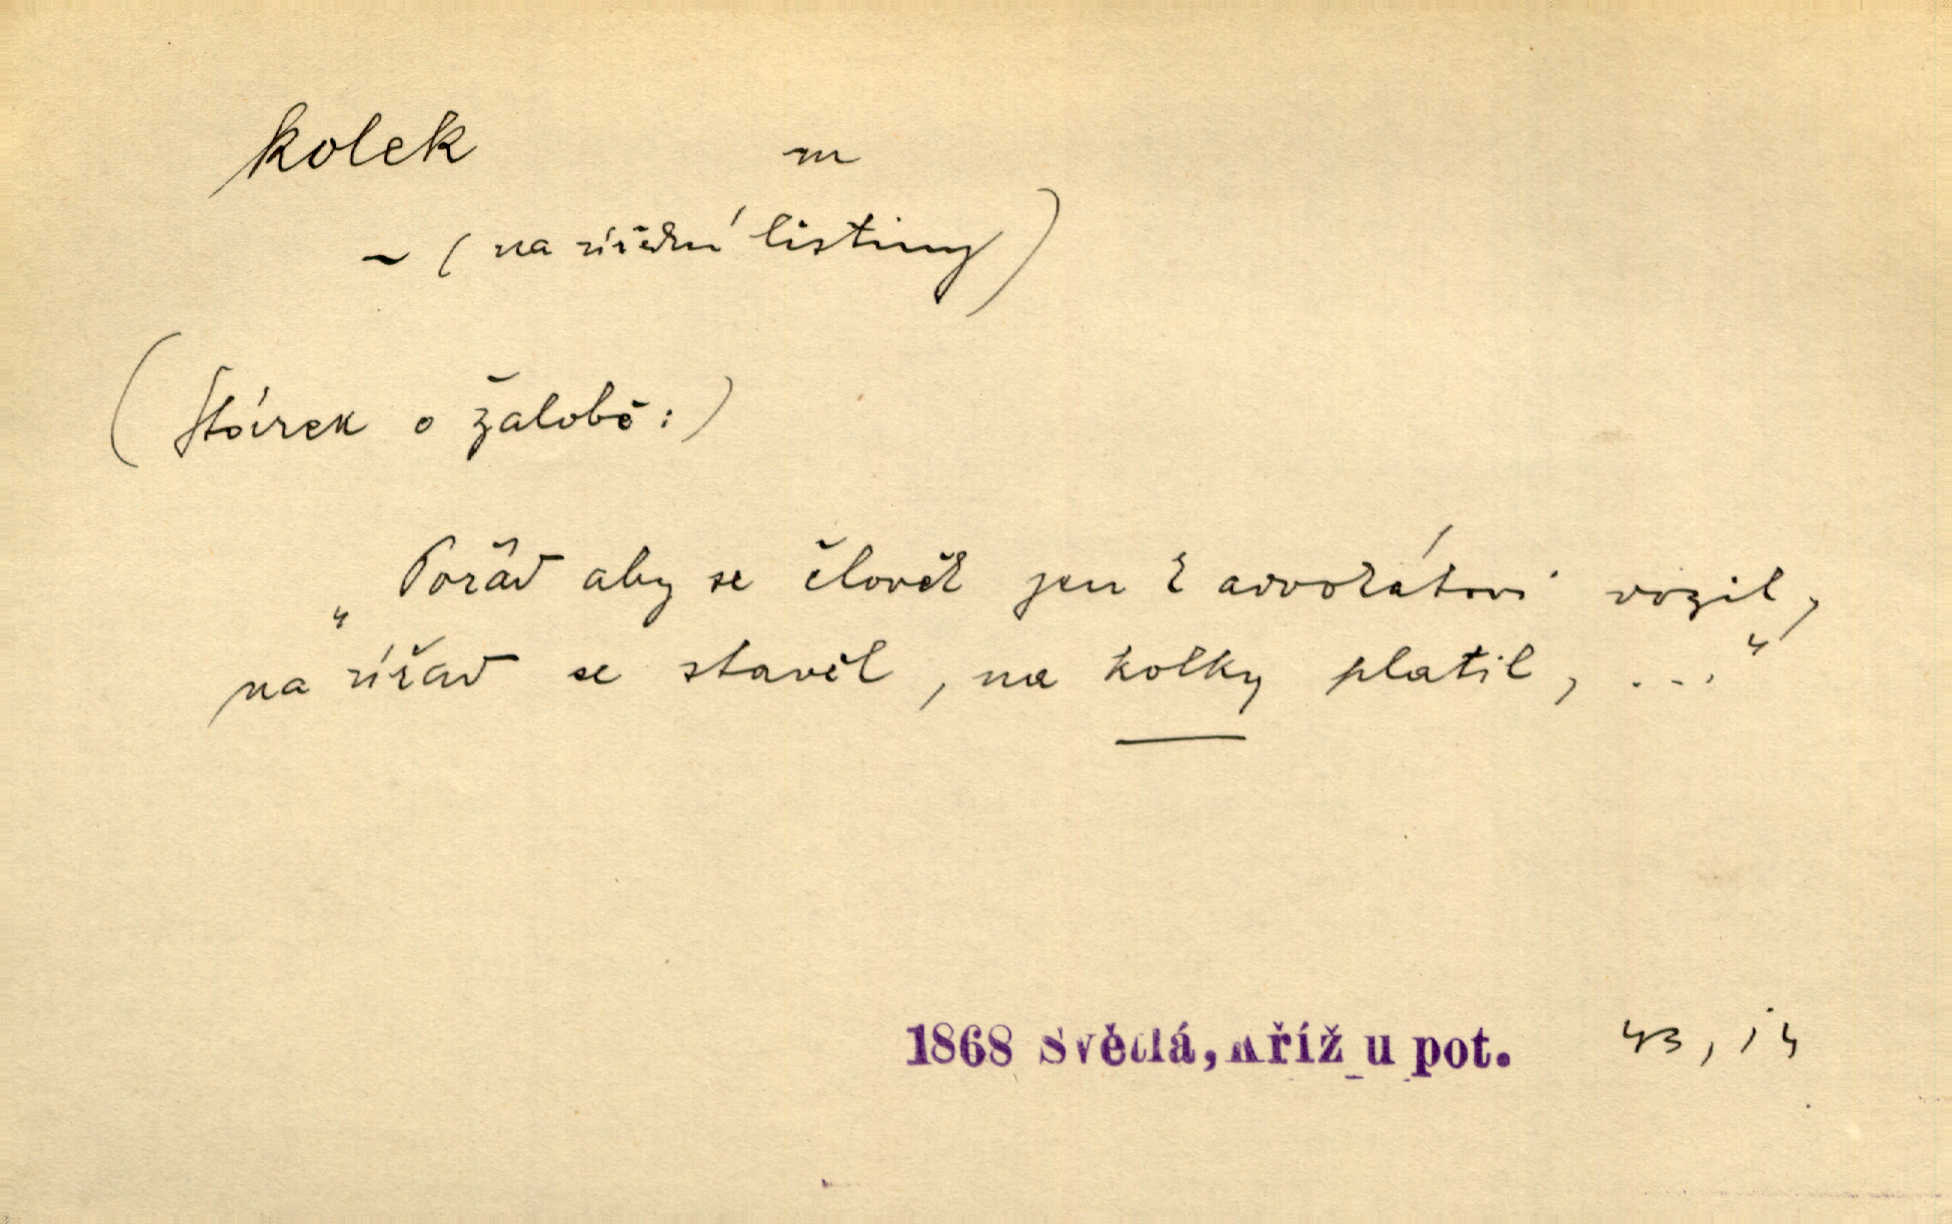 kolek m
~ (na úřední listiny)
( o žalobě:)
„Pořád aby se člověk jen k advokátovi vozil,
na úřad se stavěl, na kolky platil, ..."
1868 Světlá, Kříž u pot. 43, 14